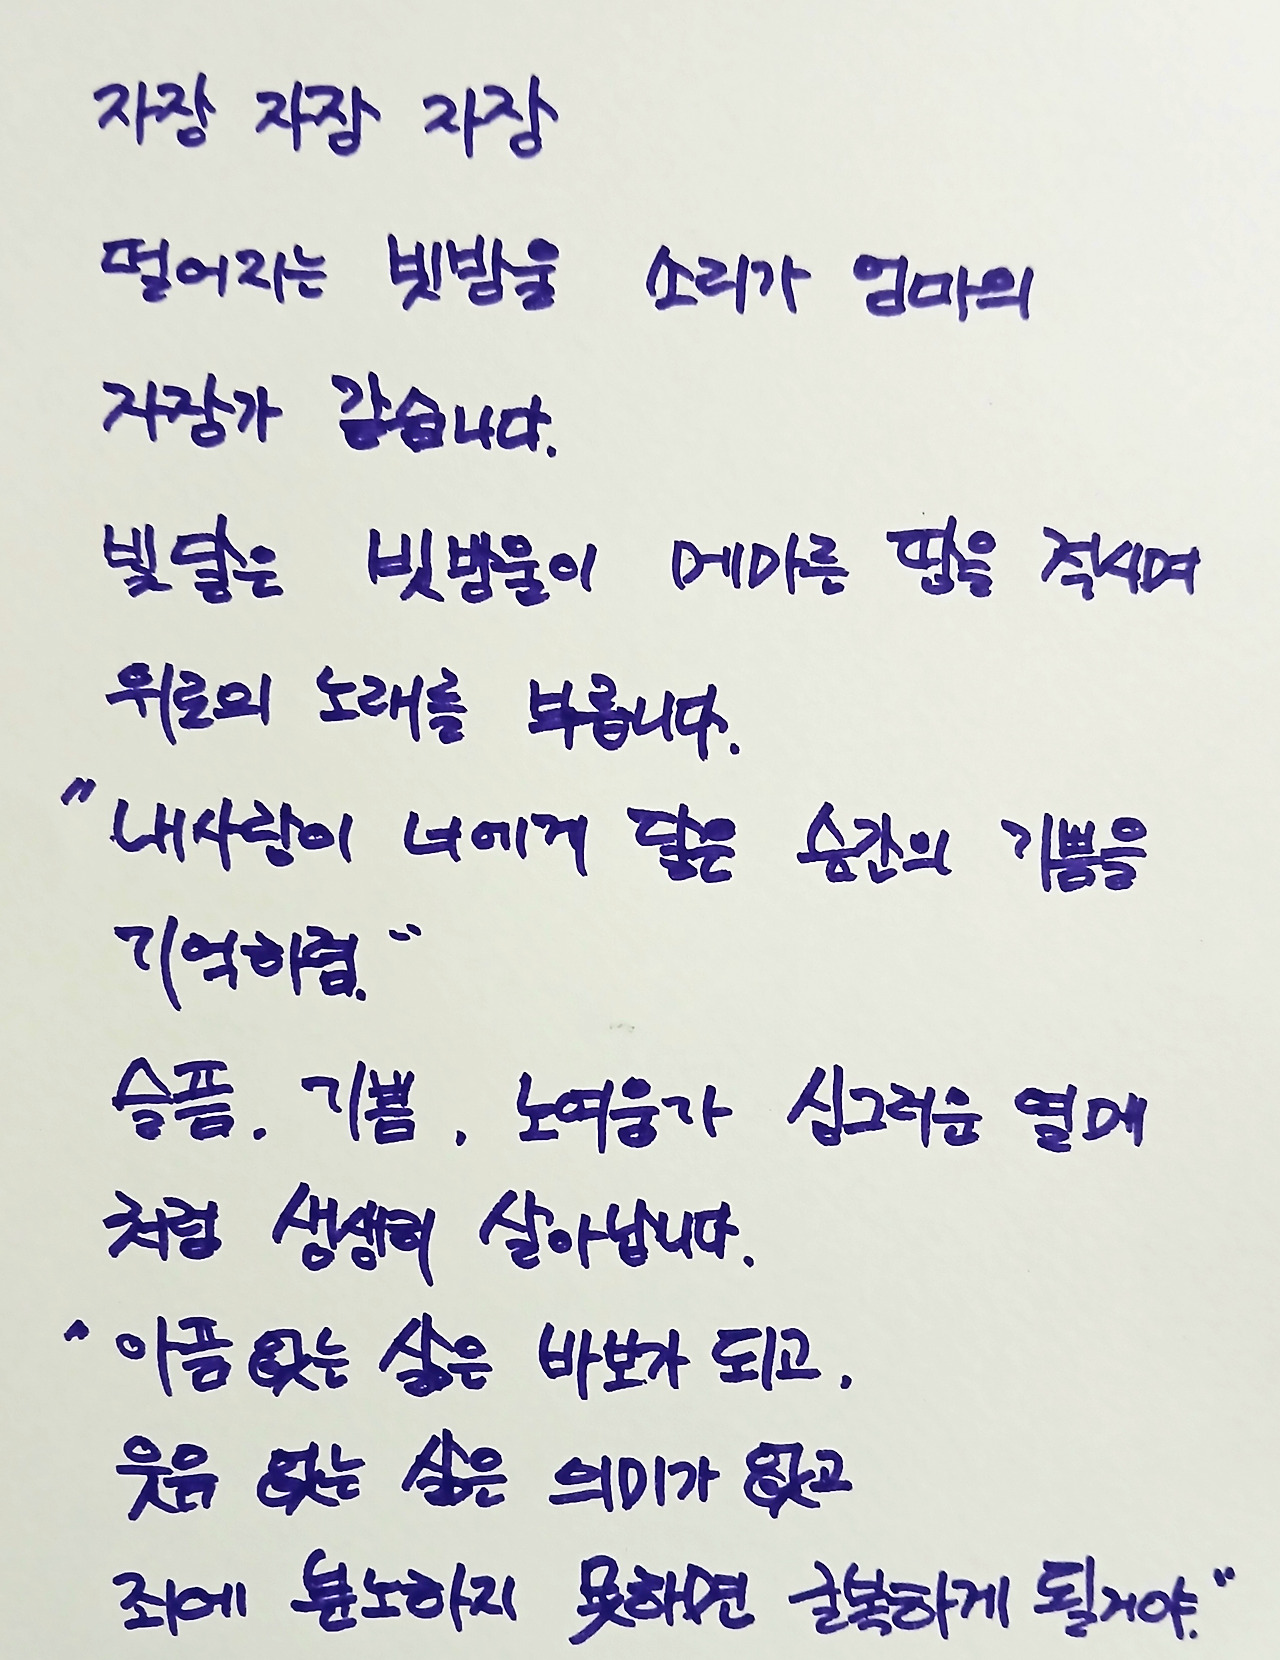 자장 자장 자장
떨어지는 빗방울 소리가 엄마의
자장가 같습니다.
빛닮은 빗방울이 메마른 땅을 적시며
위로의 노래를 부릅니다.
"내사랑이 너에게 닿은 순간의 기쁨을
기억하렴."
슬픔. 기쁨, 노여움가 싱그러운 열매
처럼 생생히 살아납니다.
"아픔 없는 삶은 바보가 되고,
웃음 없는 삶은 의미가 없고
죄에 분노하지 못하면 굴복하게 될거야."